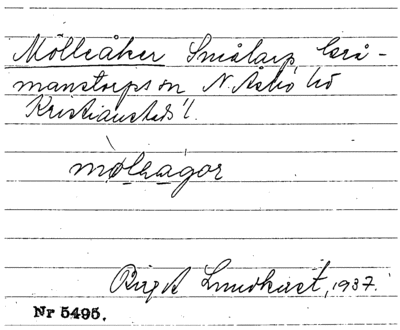 Mölleåker Smålarp, Grå-
manstorps sn N. Åsbo hd
Kristianstads l.
mòlhaágor
Birgit Lundkvist, 1937.
Nr 5495.